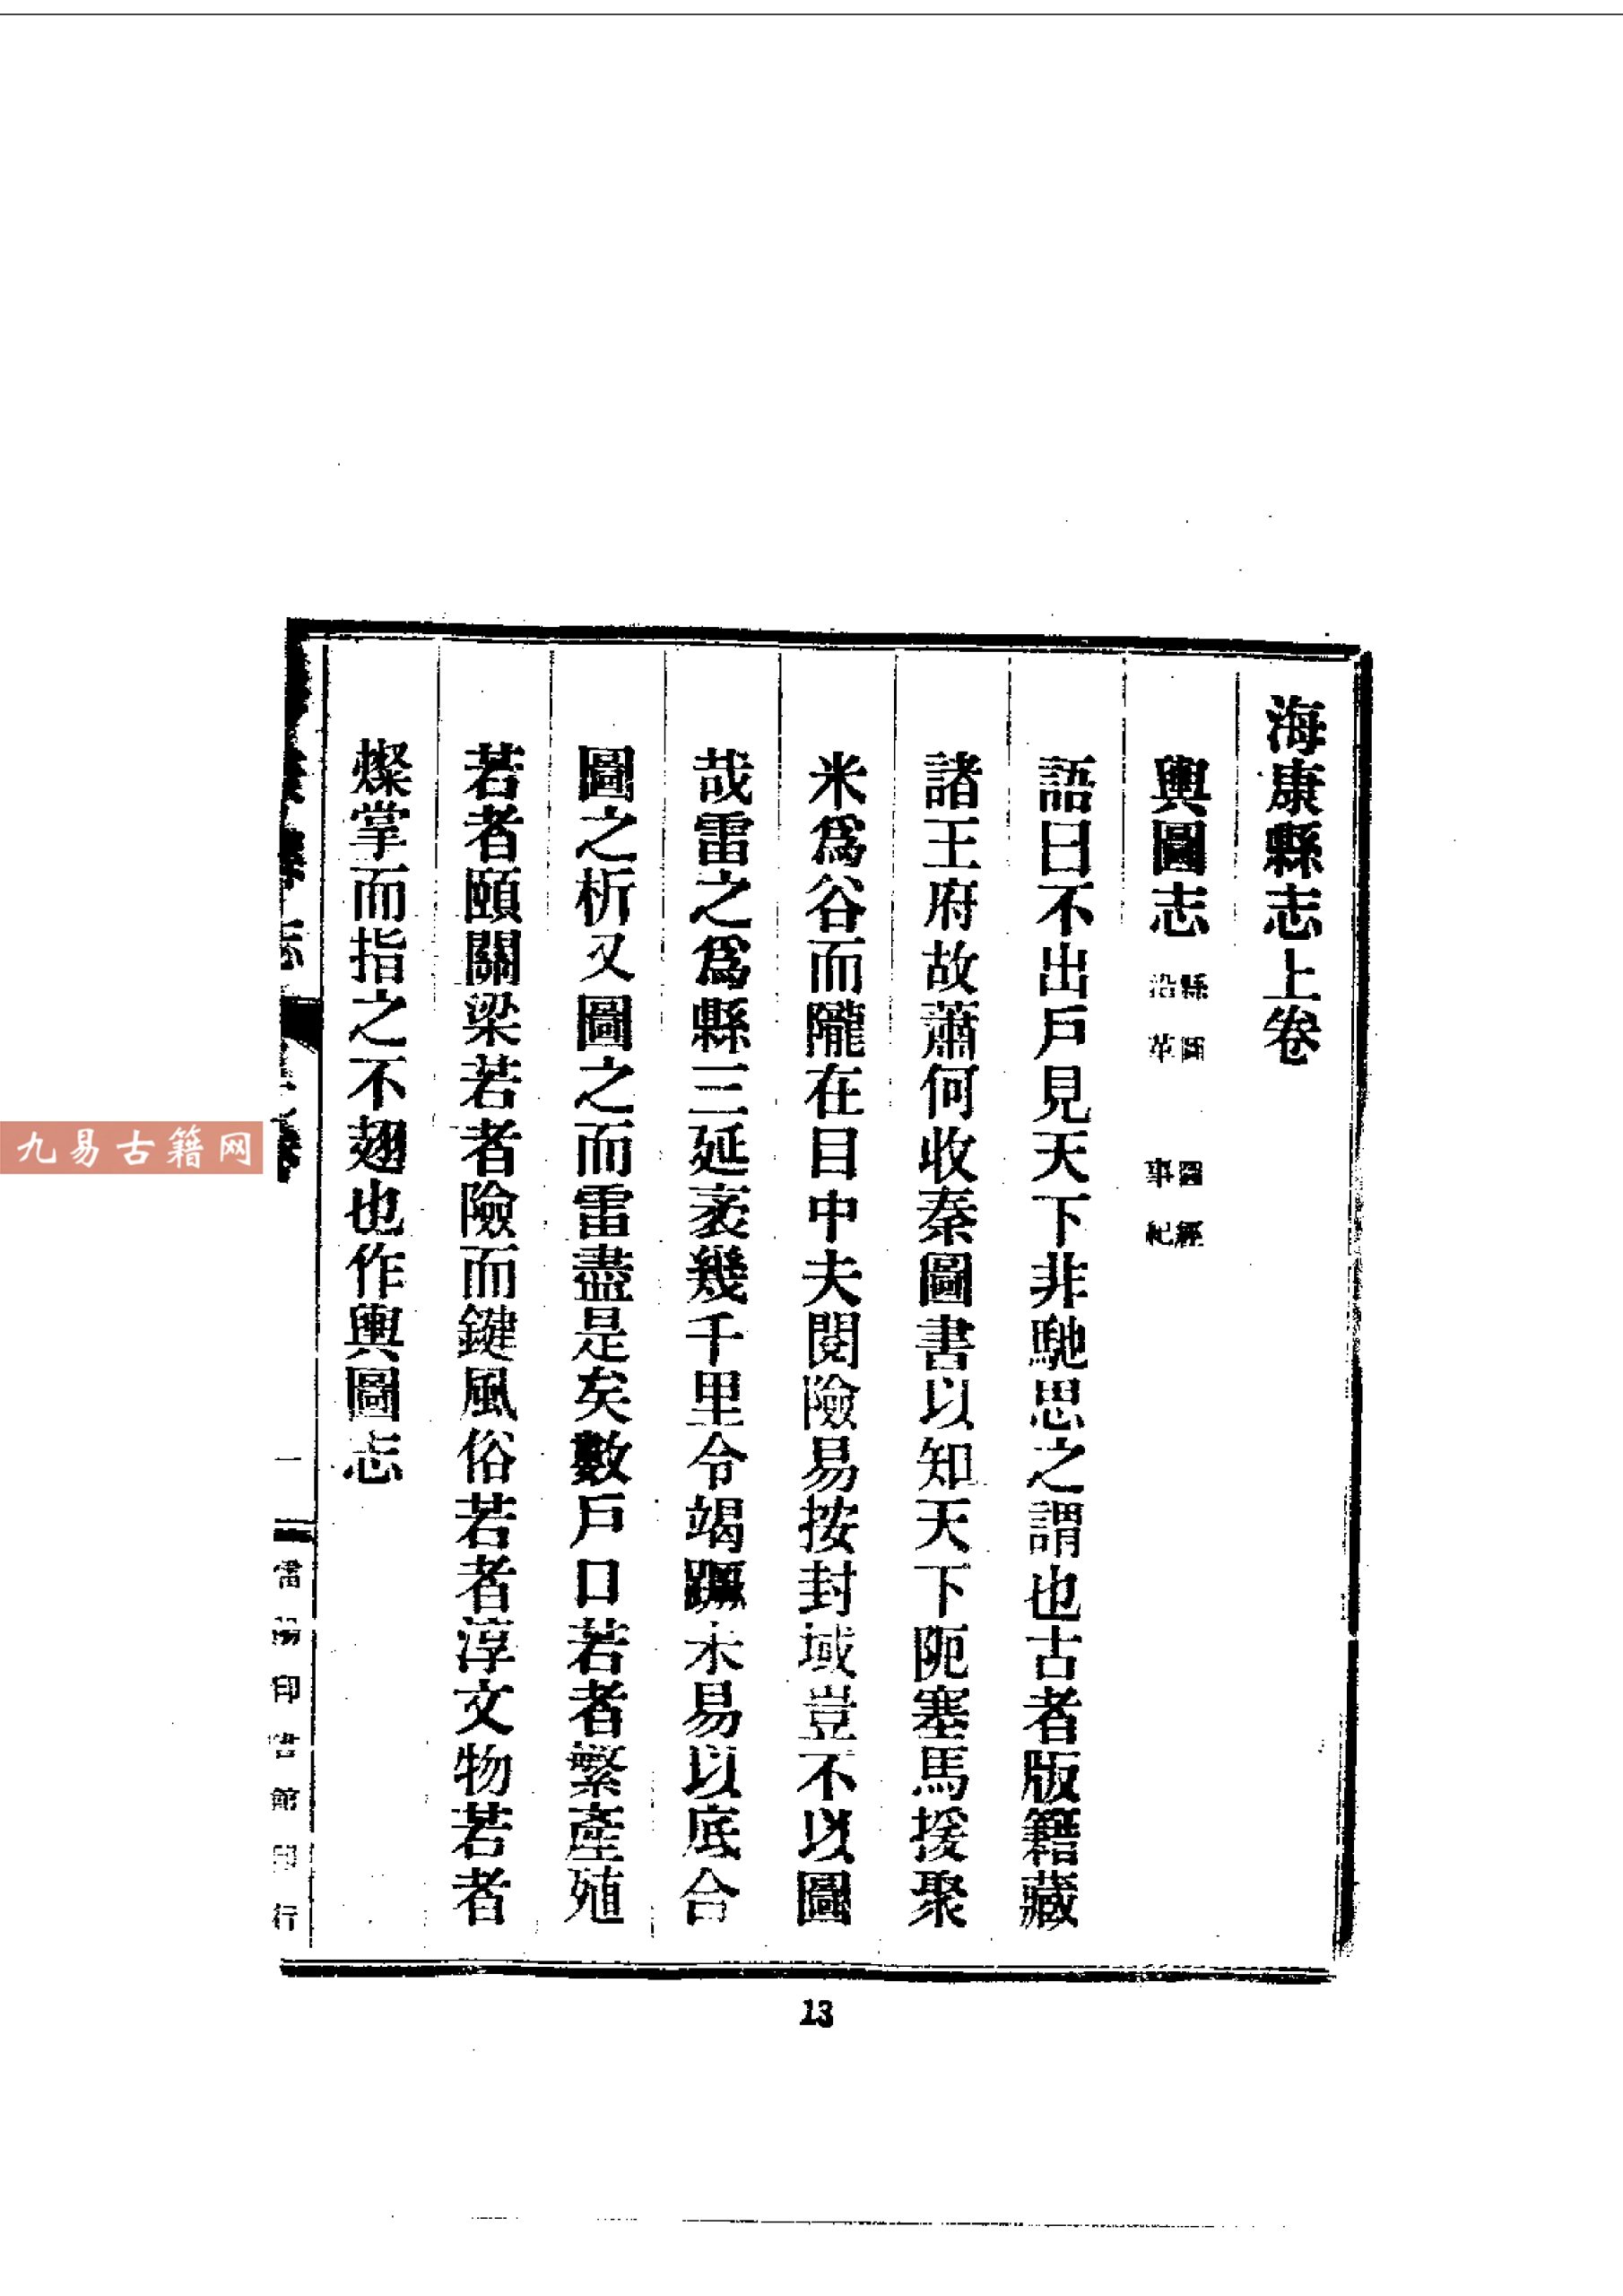 海康縣志上卷
輿圖志 縣圖 圖經 沿革 事紀
語曰不出戶見天下非馳思之謂也古者版籍藏
諸王府故蕭何收秦圖書以知天下阨塞馬援聚
米爲谷而隴在目中夫閱險易按封域豈不以圖
哉雷之爲縣三延袤幾千里令竭蹶未易以底合
圖之析又圖之而雷盡是矣數戶口若者繁產殖
若者頤關梁若者險而鍵風俗若者淳文物若者
燦掌而指之不翅也作輿圖志
縣志
一
雷陽印書館印行
九易古籍网
13